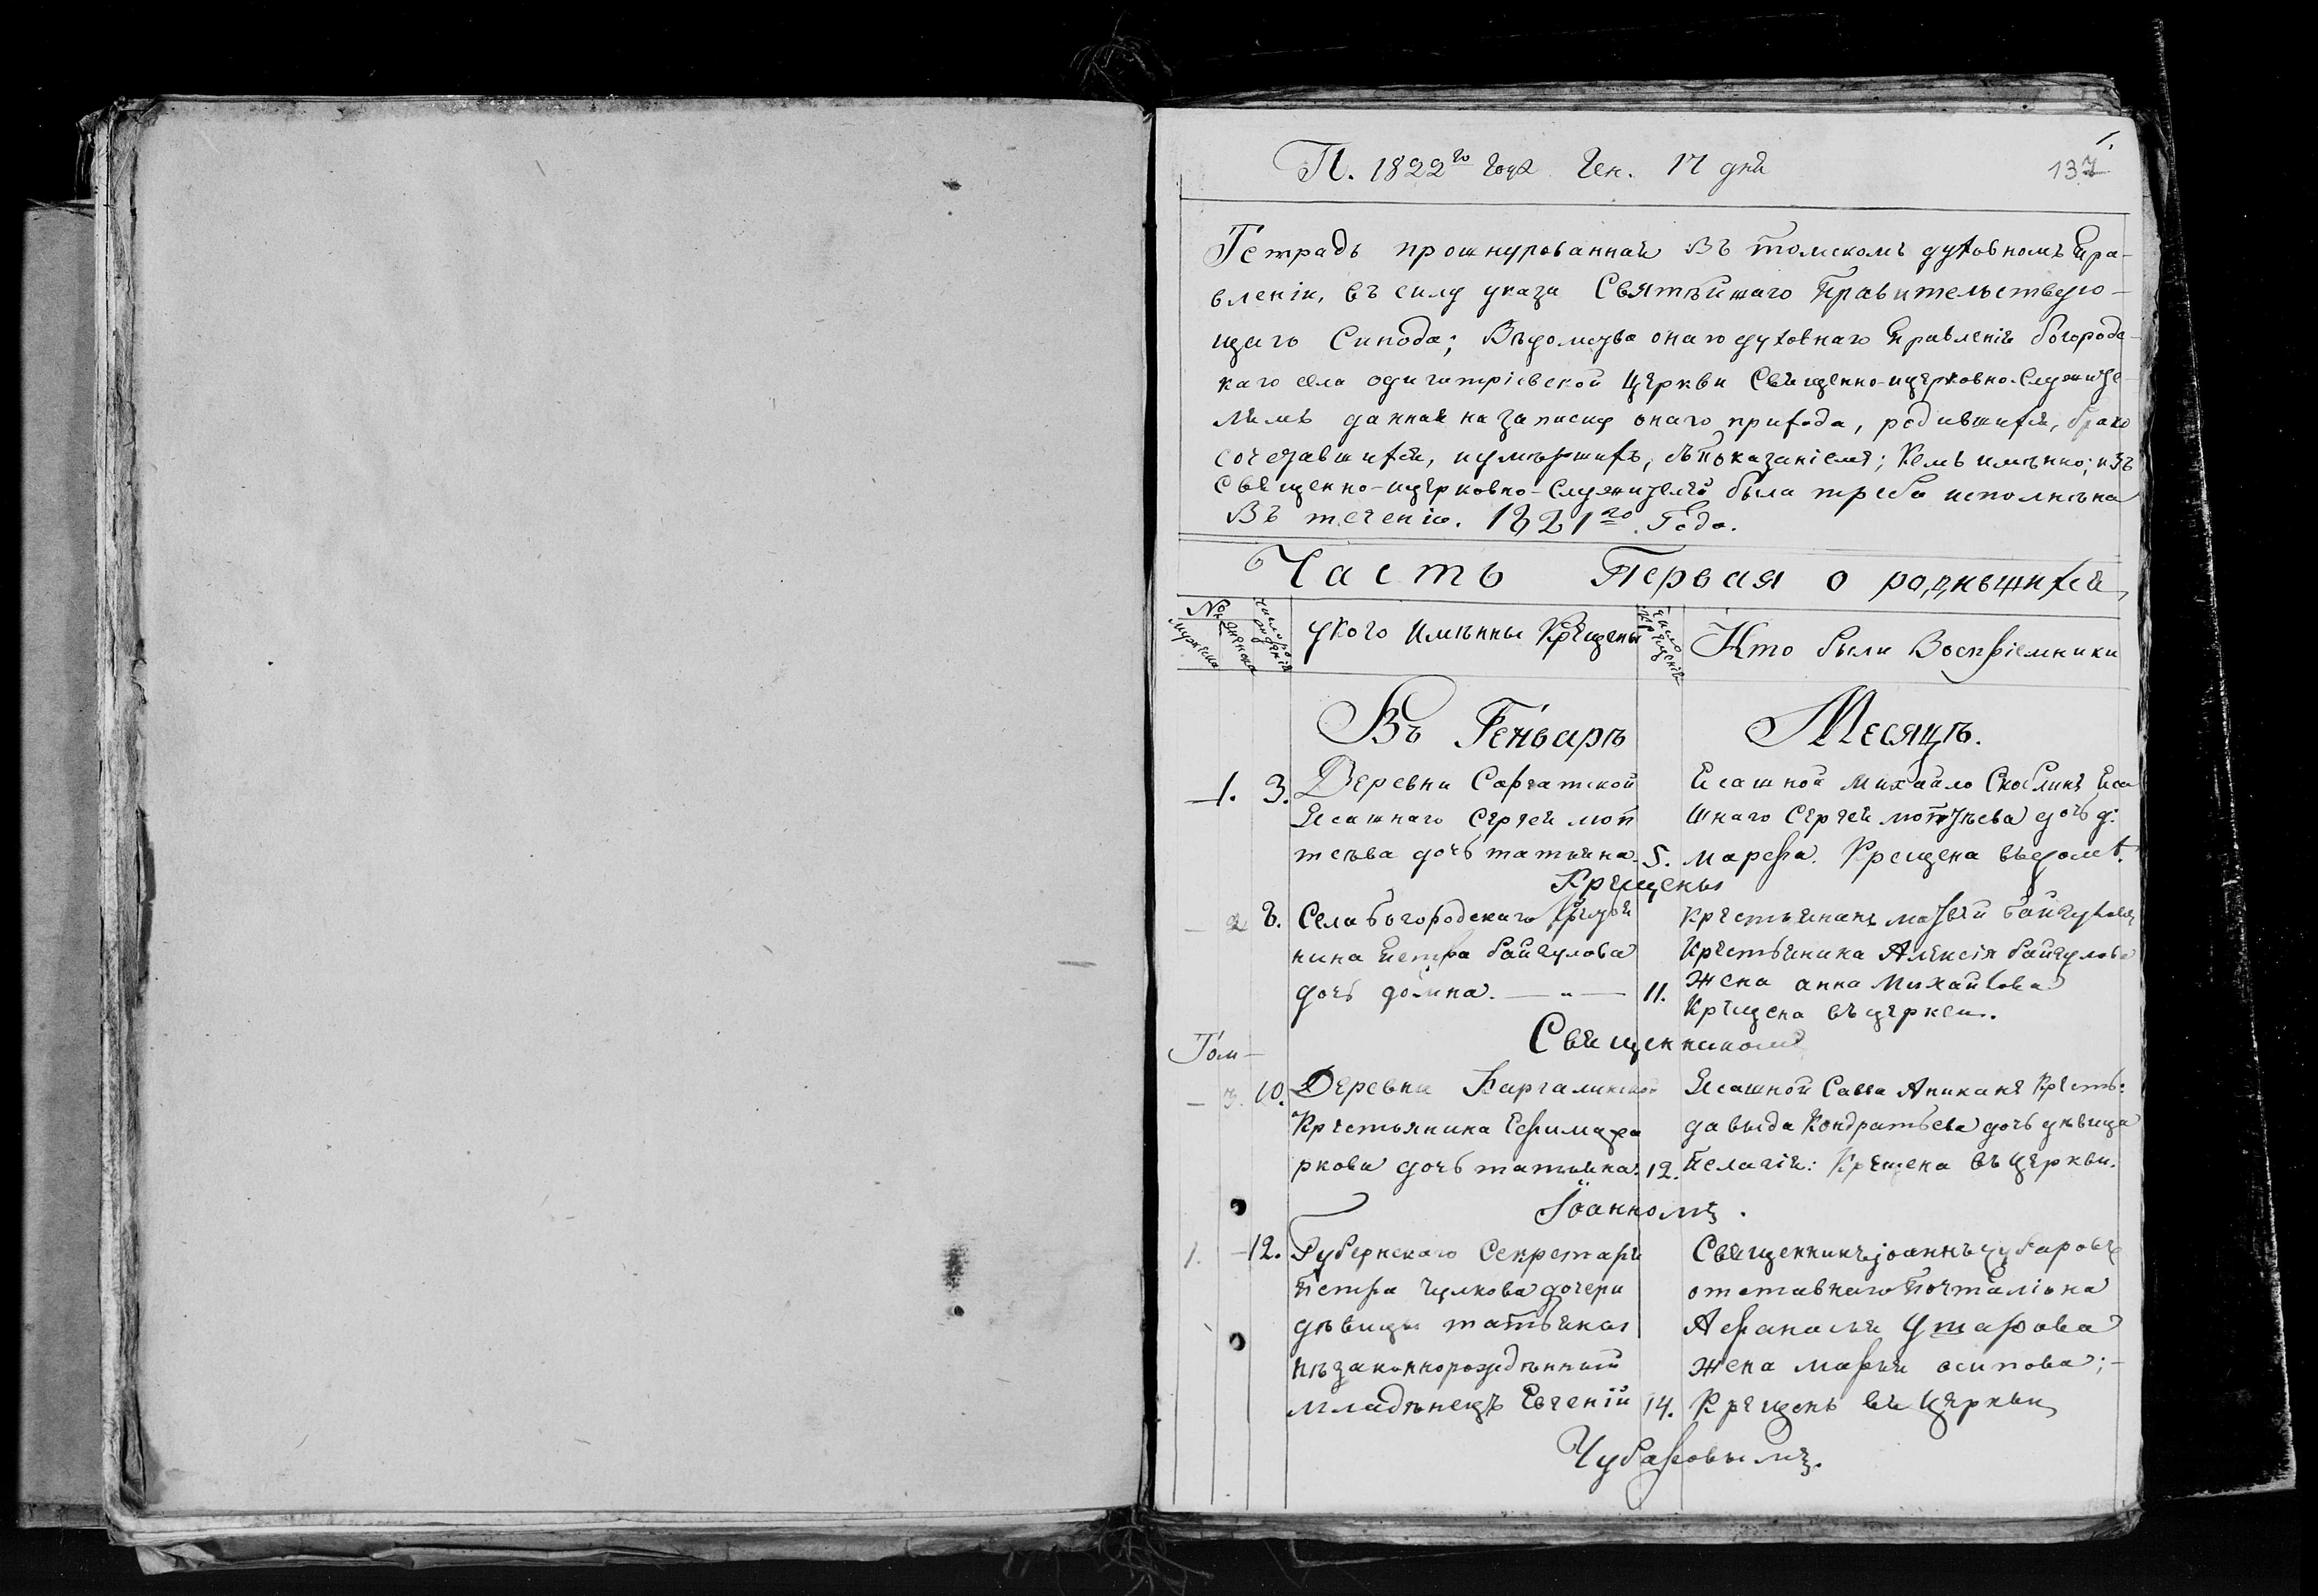 1.
П. 1822го года Ген. 17 дня
137
Тетрадь прошнурованная въ томскомъ духовномъ Пра-
вленіи, въ силу указа Святѣйшаго Правительствую-
щаго Синода; Вѣдомства онаго духовнаго Правленія богородс-
каго села одигитріевской церкви Священно-ицерковно-служите-
лямъ данная на записку онаго прихода, родившихся, брако
сочетавшихся, иумершихъ, съпоказаніемъ; Кемъ имянно; изъ
Священно-ицерковно-служителей была треба исполнена
Въ теченіи. 1821го Года.
Часть Первая о родившихся
№
мужеска
женска
число рожденія
укого Имянны Крещены
число крещенія
Кто были Воспріемники
Въ Генварѣ Месяцѣ.
1. 3. Деревни Саргатской
Ясашнаго Сергея
дочь татьяна. 5.
Ясашной Михайло Скоблинъ Яса
шнаго Сергея дочь д:
марфа. Крещена въдомѣ.
Крещены
2 8. Села богородскаго Кресть
нина Петра байгулова
дочь домна. — „ — 11.
крестьянинъ матвей байгуловъ
Крестьянина Алексія байгулова
жена анна Михайлова
Крещена въцеркви.
Священникомъ
Том-
3. 10. Деревни Каргалинской
Крестьянина Ефима
ркова дочь татьяна. 12.
Ясашной Савва Аникинъ Кресть:
давыда Кондратьева дочь дѣвица
Пелагія: Крещена въ церкви.
Іоанномъ.
1. 12. Губернскаго Секретаря
Петра Чулкова дочери
дѣвицы татьяны
незаконнорожденный
младенецъ Евгеній 14.
Священникъ іоаннъ чубаровъ
отставнаго Почталіона
Афанасья
жена марья осипова;-
Крещенъ въ церкви
Чубаровымъ.